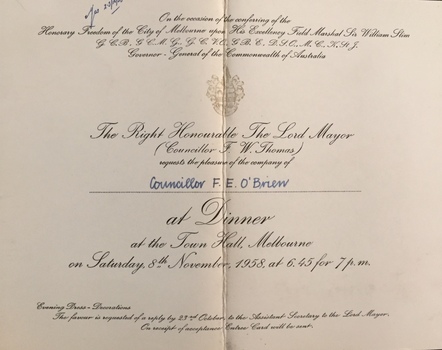 On the occasion of the conferring of the
Honorary Freedom of the City of Melbourne upon His Excellency Field Marshal Sir William Slim
G.C.B., G.C.M.G., G.C.V.O., G.B.E., D.S.O., M.C., K.St.J.
Governor-General of the Commonwealth of Australia
The Right Honourable The Lord Mayor
(Councillor F. W. Thomas)
requests the pleasure of the company of
Councillor F. E. O'Brien
at Dinner
at the Town Hall, Melbourne
on Saturday, 8th November, 1958, at 6.45 for 7 p.m.
Evening Dress - Decorations
The favour is requested of a reply by 23rd October, to the Assistant Secretary to the Lord Mayor.
On receipt of acceptance Entree Card will be sent.